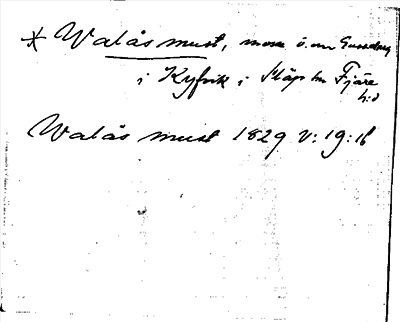 * Walås must, mosse ö. om Gundal
i Kyvik i Släp sn Fjäre
h:d
Walås must 1829 V: 19: 16